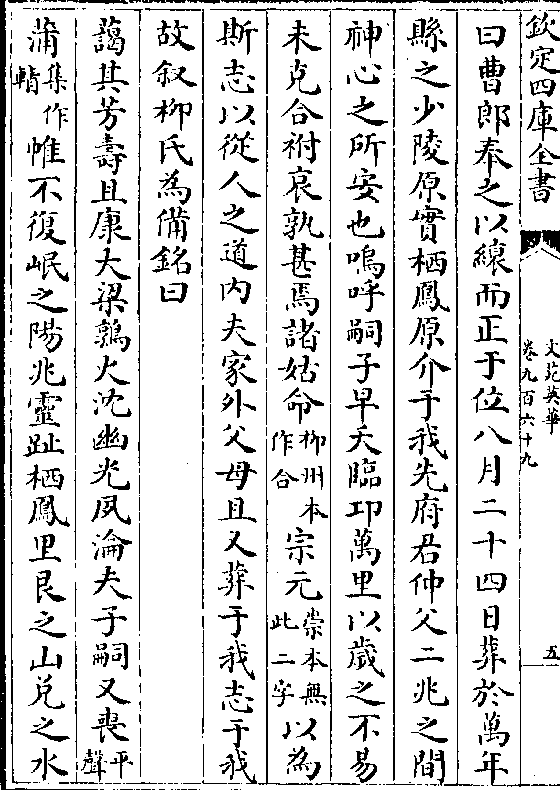 欽定四庫全書
文苑英華
卷九百六十九
五
曰曹郎奉之以縗而正于位八月二十四日葬於萬年
縣之少陵原實栖鳳原介于我先府君仲父二兆之間
神心之所安也嗚呼嗣子早夭臨邛萬里以歲之不易
未克合祔哀孰甚焉諸姑命柳州本作合宗元崇本無此二字以為
斯志以從人之道内夫家外父母且又葬于我志于我
故叙柳氏為備銘曰
藹其芳壽且康大梁鶉火沈幽光夙淪夫子嗣又喪平聲
蒲集作輤帷不復岷之陽兆靈趾栖鳳里艮之山兌之水